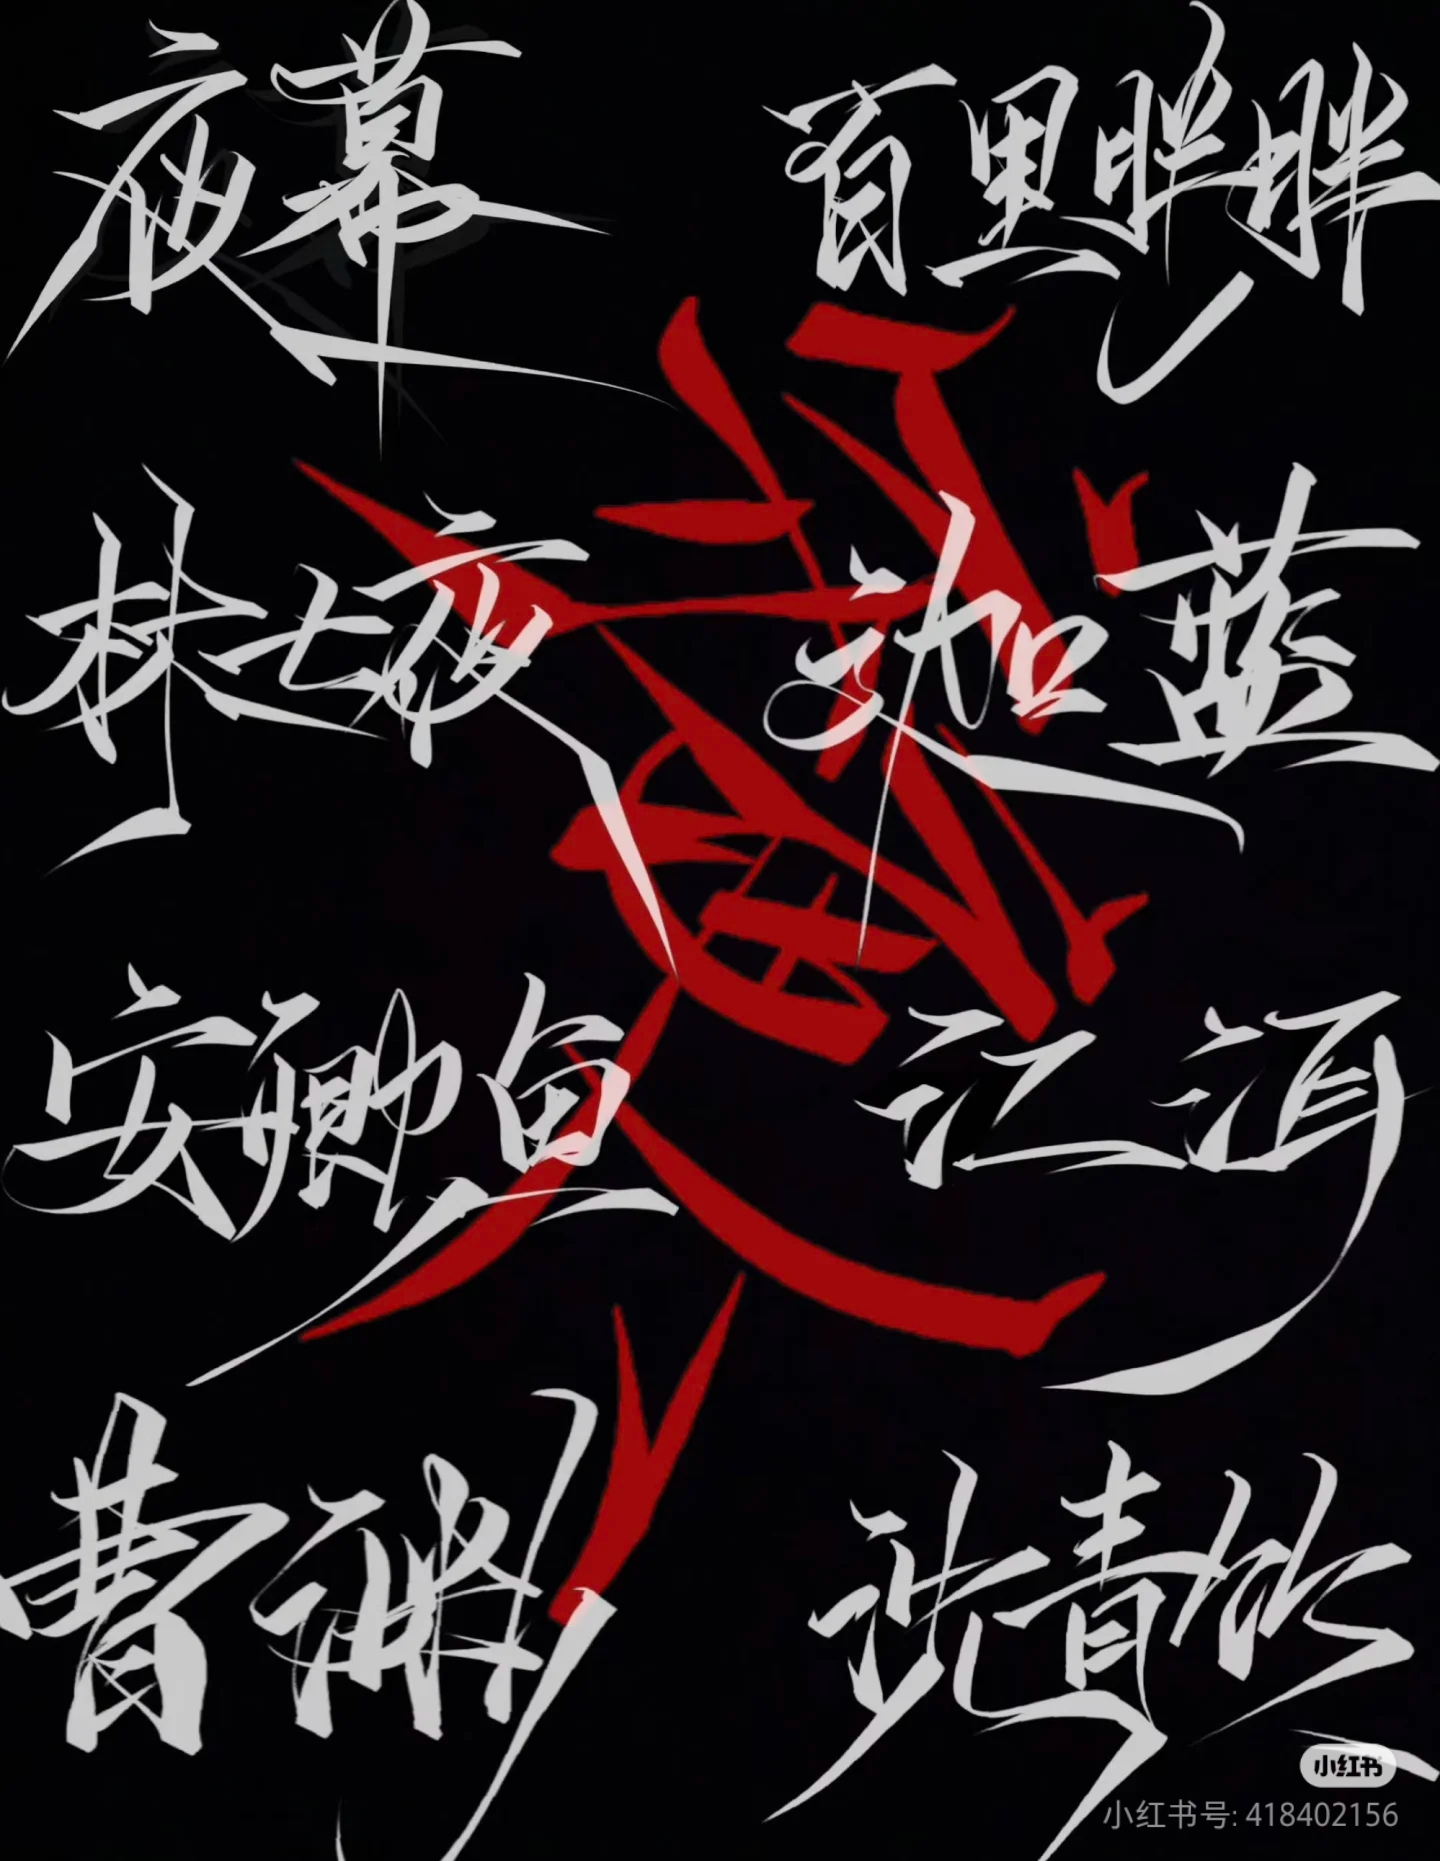 夜幕
百里胖胖
林七夜
迦蓝
安卿鱼
江洱
曹渊
沈青竹
小红书
小红书号: 418402156